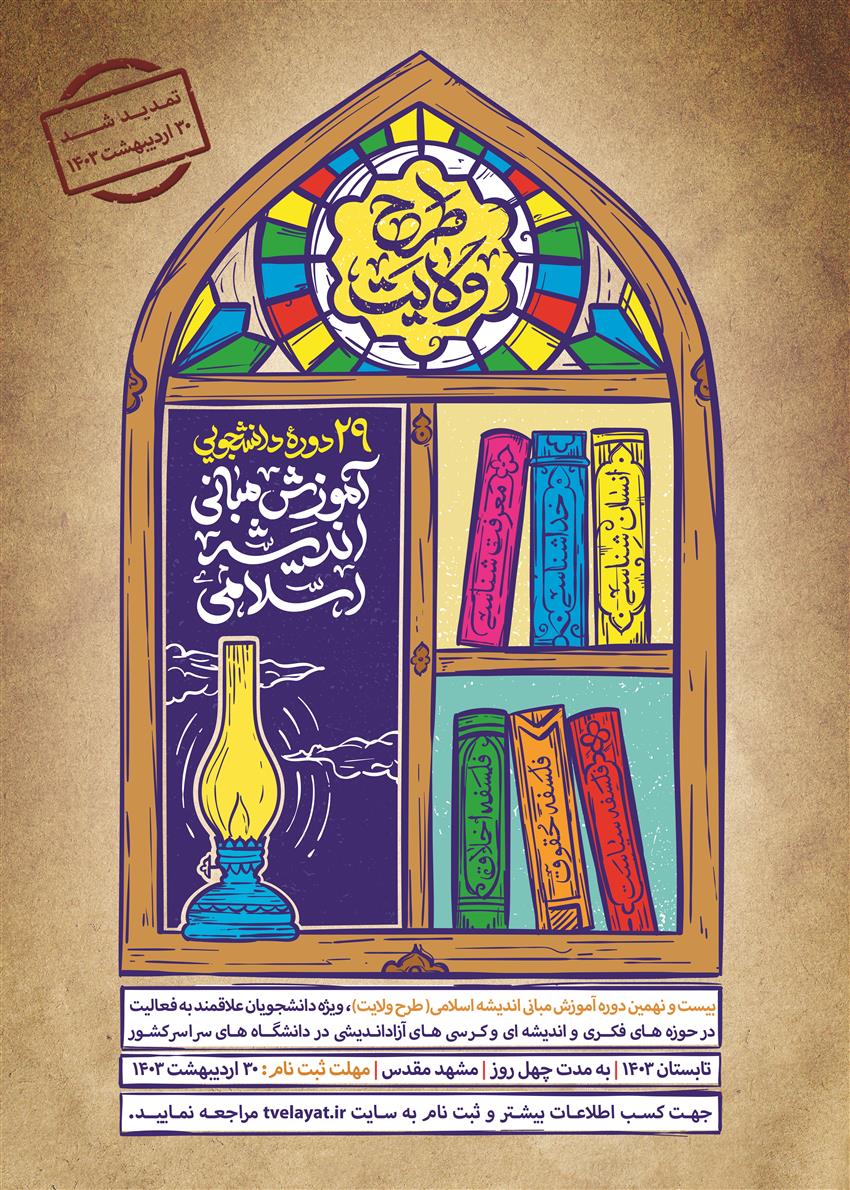 تمدید شد
۳۰ اردیبهشت ۱۴۰۳
طرح
ولایت
۲۹ دورهٔ دانشجویی
آموزش مبانی
اندیشه
اسلامی
معرفت شناسی
خداشناسی
انسان شناسی
فلسفه اخلاق
فلسفه حقوق
فلسفه سیاست
بیست و نهمین دوره آموزش مبانی اندیشه اسلامی( طرح ولایت)، ویژه دانشجویان علاقمند به فعالیت
در حوزه های فکری و اندیشه ای و کرسی های آزاداندیشی در دانشگاه های سراسر کشور
تابستان ۱۴۰۳ | به مدت چهل روز | مشهد مقدس | مهلت ثبت نام : ۳۰ اردیبهشت ۱۴۰۳
جهت کسب اطلاعات بیشتر و ثبت نام به سایت tvelayat.ir مراجعه نمایید.